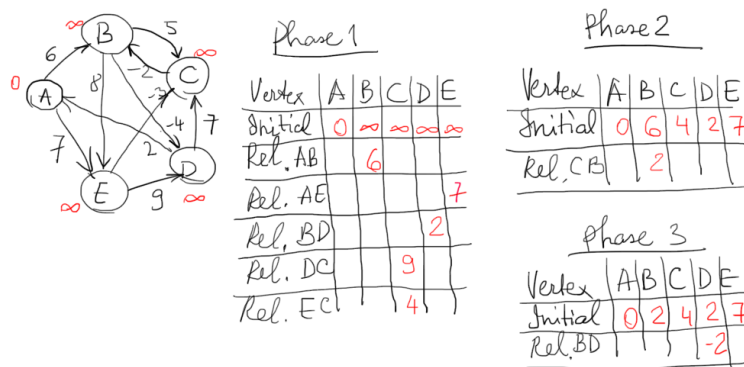 ∞ B 5
6 ∞
-2 C
0 A 8 -3
-4 7
7 2 D
E 9 ∞
∞
Phase 1
Vertex A B C D E
Initial 0 ∞ ∞ ∞ ∞
Rel. AB 6
Rel. AE 7
Rel. BD 2
Rel. DC 9
Rel. EC 4
Phase 2
Vertex A B C D E
Initial 0 6 4 2 7
Rel. CB 2
Phase 3
Vertex A B C D E
Initial 0 2 4 2 7
Rel. BD -2